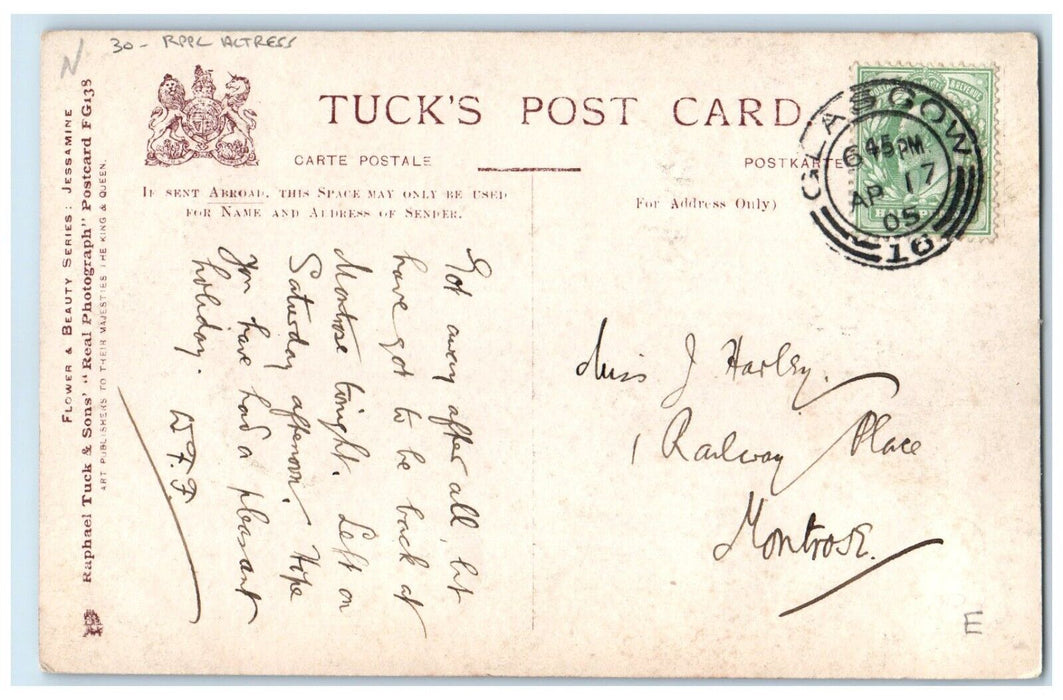 N
30- RPPC ACTRESS
TUCK'S POST CARD
CARTE POSTALE
POSTKARTE
IF SENT ABROAD, THIS SPACE MAY ONLY BE USED
FOR NAME AND ADDRESS OF SENDER.
For Address Only)
FLOWER & BEAUTY SERIES: JESSAMINE
Raphael Tuck & Sons' "Real Photograph" Postcard FG138
ART PUBLISHERS TO THEIR MAJESTIES THE KING & QUEEN.
Got away after all, but
have got to be back at
Montrose tonight. Left on
Saturday afternoon. Hope
you have had a pleasant
holiday.
W.F.F.
GLASGOW
6 45 PM
AP 17
05
16
POSTAGE & REVENUE
Miss J Harley.
1 Railway Place
Montrose.
E